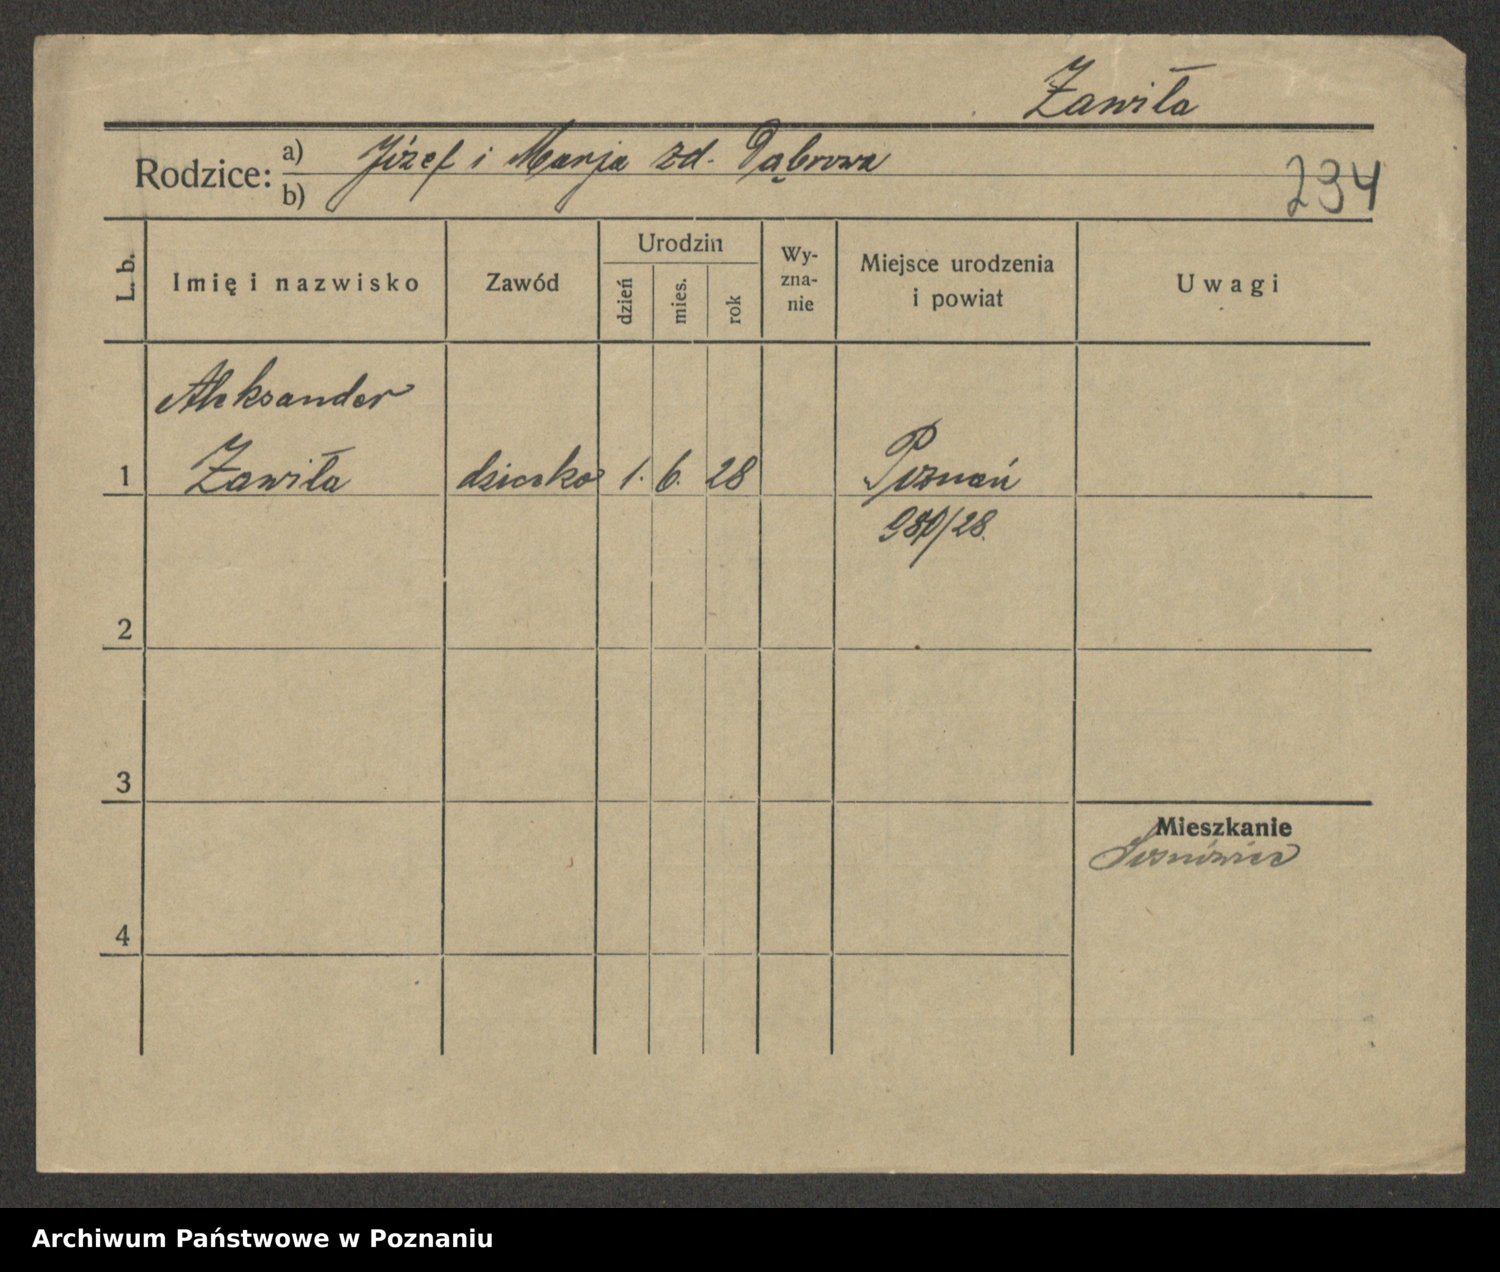 Zawiła
Rodzice: a) Józef i Marja zd. Dąbrowa
b)
234
L. b.
Imię i nazwisko
Zawód
Urodzin
dzień
mies.
rok
Wy-
zna-
nie
Miejsce urodzenia
i powiat
Uwagi
Aleksander
1 Zawiła dziecko 1. 6. 28 Poznań
/28.
2
3
Mieszkanie
Sosnówiec
4
Archiwum Państwowe w Poznaniu